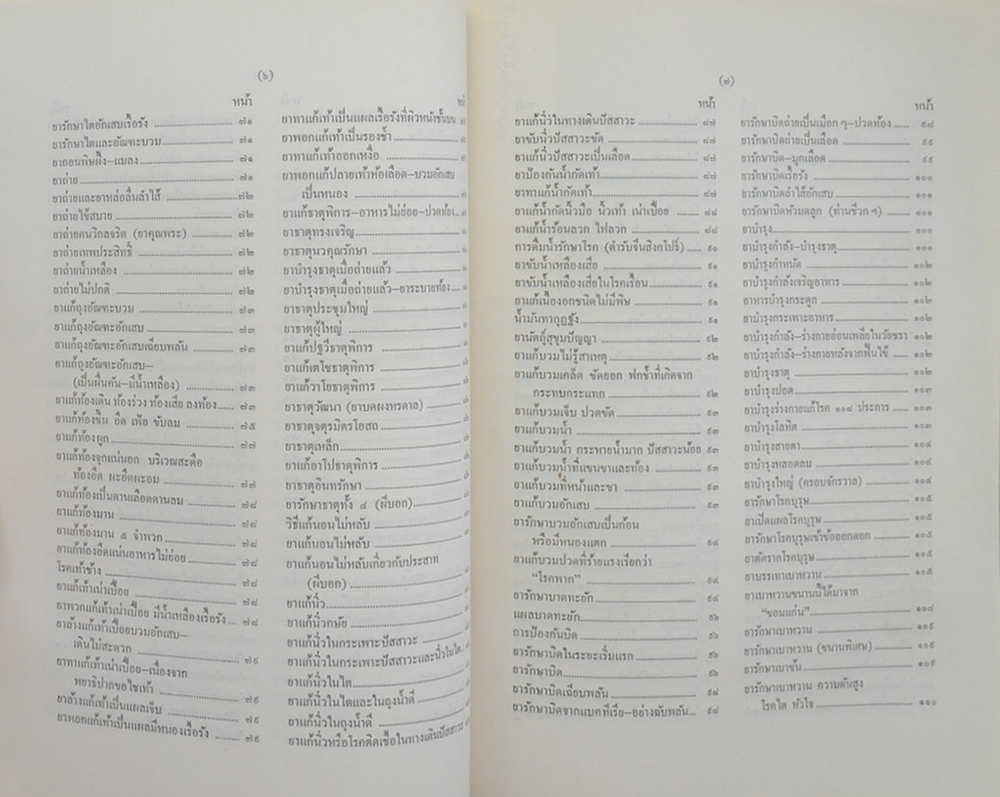 (๖)
หน้า
ยารักษาไตอักเสบเรื้อรัง ๗๑
ยารักษาไตและอัณฑะบวม ๗๑
ยาถอนพิษผึ้ง-แมลง ๗๑
ยาถ่าย ๗๑
ยาถ่ายและยาหล่อลื่นลำไส้ ๗๒
ยาถ่ายไข้สบาย ๗๒
ยาถ่ายคนวิกลจริต (ยาคุณพระ) ๗๒
ยาถ่ายเทพประสิทธิ์ ๗๒
ยาถ่ายน้ำเหลือง ๗๒
ยาถ่ายไม่ปกติ ๗๒
ยาแก้ถุงอัณฑะบวม ๗๓
ยาแก้ถุงอัณฑะอักเสบ ๗๓
ยาแก้ถุงอัณฑะอักเสบเฉียบพลัน ๗๓
ยาแก้ถุงอัณฑะอักเสบ-
(เป็นผื่นคัน-มีน้ำเหลือง) ๗๓
ยาแก้ท้องเดิน ท้องร่วง ท้องเสีย ลงท้อง ๗๓
ยาแก้ท้องขึ้น อืด เฟ้อ ขับลม ๗๕
ยาแก้ท้องผูก ๗๗
ยาแก้ท้องจุกแน่นอก บริเวณสะดือ
ท้องอืด ผะอืดผะอม ๗๗
ยาแก้ท้องเป็นดานเลือดดานลม ๗๘
ยาแก้ท้องมาน ๗๘
ยาแก้ท้องมาน ๕ จำพวก ๗๘
ยาแก้ท้องอืดแน่นอาหารไม่ย่อย ๗๘
โรคเท้าช้าง ๗๘
ยาแก้เท้าเน่าเปื่อย ๗๘
ยาพวกแก้เท้าเน่าเปื่อย มีน้ำเหลืองเรื้อรัง ๗๘
ยาล้างแก้เท้าเปื่อยบวมอักเสบ-
เดินไม่สะดวก ๗๙
ยาทาแก้เท้าเน่าเปื่อย-เนื่องจาก
พยาธิปากขอไชเท้า ๗๙
ยาล้างแก้เท้าเป็นแผลเจ็บ ๗๙
ยาพอกแก้เท้าเป็นแผลมีหนองเรื้อรัง ๗๙
ยาทาแก้เท้าเป็นแผลเรื้อรังที่ผิวหนังชั้นบน
ยาพอกแก้เท้าเป็นรองช้ำ
ยาทาแก้เท้าออกเหงื่อ
ยาพอกแก้ปลายเท้าห้อเลือด-บวมอักเสบ
เป็นหนอง
ยาแก้ธาตุพิการ-อาหารไม่ย่อย-ปวดท้อง
ยาธาตุทรงเจริญ
ยาธาตุนวคุณรักษา
ยาบำรุงธาตุเมื่อถ่ายแล้ว
ยาบำรุงธาตุเมื่อถ่ายแล้ว-ยาระบายท้อง
ยาธาตุประชุมใหญ่
ยาธาตุผู้ใหญ่
ยาแก้ปฐวีธาตุพิการ
ยาแก้เตโชธาตุพิการ
ยาแก้วาโยธาตุพิการ
ยาธาตุวัฒนา (ยาบดผงทรดาล)
ยาธาตุจตุรมิตรโอสถ
ยาธาตุเหล็ก
ยาแก้อาโปธาตุพิการ
ยาธาตุอินทรักษา
ยารักษาธาตุทั้ง ๔ (ผีบอก)
วิธีแก้นอนไม่หลับ
ยาแก้นอนไม่หลับ
ยาแก้นอนไม่หลับเกี่ยวกับประสาท
(ผีบอก)
ยาแก้นิ่ว
ยาแก้นิ่วกษัย
ยาแก้นิ่วในกระเพาะปัสสาวะ
ยาแก้นิ่วในกระเพาะปัสสาวะและนิ่วในไต
ยาแก้นิ่วในไต
ยาแก้นิ่วในไตและในถุงน้ำดี
ยาแก้นิ่วในถุงน้ำดี
ยาแก้นิ่วหรือโรคติดเชื้อในทางเดินปัสสาวะ
(๗)
หน้า
ยาแก้นิ่วในทางเดินปัสสาวะ ๘๗
ยาขับนิ่วปัสสาวะขัด ๘๗
ยาแก้นิ่วปัสสาวะเป็นเลือด ๘๗
ยาป้องกันน้ำกัดเท้า ๘๗
ยาทาแก้น้ำกัดเท้า ๘๗
ยาแก้น้ำกัดนิ้วมือ นิ้วเท้า เน่าเปื่อย ๘๘
ยาแก้น้ำร้อนลวก ไฟลวก ๘๘
การดื่มน้ำรักษาโรค (ตำรับจีนสิงคโปร์) ๙๐
ยาขับน้ำเหลืองเสีย ๙๑
ยาขับน้ำเหลืองเสียในโรคเรื้อน ๙๑
ยาแก้เนื้องอกชนิดไม่มีพิษ ๙๑
น้ำมันทากุฏฐัง ๙๑
ยานัตถุ์สุขุมปัญญา ๙๒
ยาแก้บวมไม่รู้สาเหตุ ๙๒
ยาแก้บวมเคล็ด ขัดยอก ฟกช้ำที่เกิดจาก
กระทบกระแทก ๙๒
ยาแก้บวมเจ็บ ปวดขัด ๙๓
ยาแก้บวมน้ำ ๙๓
ยาแก้บวมน้ำ กระหายน้ำมาก ปัสสาวะน้อย ๙๓
ยาแก้บวมน้ำที่แขนขาและท้อง ๙๓
ยาแก้บวมที่หน้าและขา ๙๓
ยาแก้บวมอักเสบ ๙๓
ยารักษาบวมอักเสบเป็นก้อน
หรือมีหนองแตก ๙๔
ยาแก้บวมปวดที่ร้ายแรงเรียกว่า
“โรคพาก” ๙๔
ยารักษาบาดทะยัก ๙๔
แผลบาดทะยัก ๙๖
การป้องกันบิด ๙๖
ยารักษาบิดในระยะเริ่มแรก ๙๖
ยารักษาบิด ๙๖
ยารักษาบิดเฉียบพลัน ๙๘
ยารักษาบิดจากแบคทีเรีย-อย่างฉับพลัน ๙๘
หน้า
ยารักษาบิดถ่ายเป็นเมือก ๆ-ปวดท้อง ๙๘
ยารักษาบิดถ่ายเป็นเลือด ๙๙
ยารักษาบิด-มูกเลือด ๙๙
ยารักษาบิดเรื้อรัง ๑๐๐
ยารักษาบิดลำไส้อักเสบ ๑๐๑
ยารักษาบิดหัวมดลูก (ท่านชีวก ฯ) ๑๐๑
ยาบำรุง ๑๐๑
ยาบำรุงกำลัง-บำรุงธาตุ ๑๐๑
ยาบำรุงกำหนัด ๑๐๒
ยาบำรุงกำลังเจริญอาหาร ๑๐๒
อาหารบำรุงกระดูก ๑๐๒
ยาบำรุงกระเพาะอาหาร ๑๐๒
ยาบำรุงกำลัง-ร่างกายอ่อนเพลียในวัยชรา ๑๐๒
ยาบำรุงกำลัง-ร่างกายหลังจากฟื้นไข้ ๑๐๒
ยาบำรุงธาตุ ๑๐๒
ยาบำรุงปอด ๑๐๓
ยาบำรุงร่างกายแก้โรค ๑๐๘ ประการ ๑๐๓
ยาบำรุงโลหิต ๑๐๓
ยาบำรุงสายตา ๑๐๔
ยาบำรุงหลอดลม ๑๐๔
ยาบำรุงใหญ่ (ครอบจักรวาล) ๑๐๔
ยารักษาโรคบุรุษ ๑๐๕
ยาเปิดแผลโรคบุรุษ ๑๐๕
ยารักษาโรคบุรุษเข้าข้อออกดอก ๑๐๕
ยาตัดรากโรคบุรุษ ๑๐๕
ยาบรรเทาเบาหวาน ๑๐๕
ยาเบาหวานขนานนี้ได้มาจาก
“ขอนแก่น” ๑๐๘
ยารักษาเบาหวาน ๑๐๙
ยารักษาเบาหวาน (ขนานพิเศษ) ๑๐๙
ยารักษาเบาขัน ๑๐๙
ยารักษาเบาหวาน ความดันสูง
โรคไต หัวใจ ๑๑๐